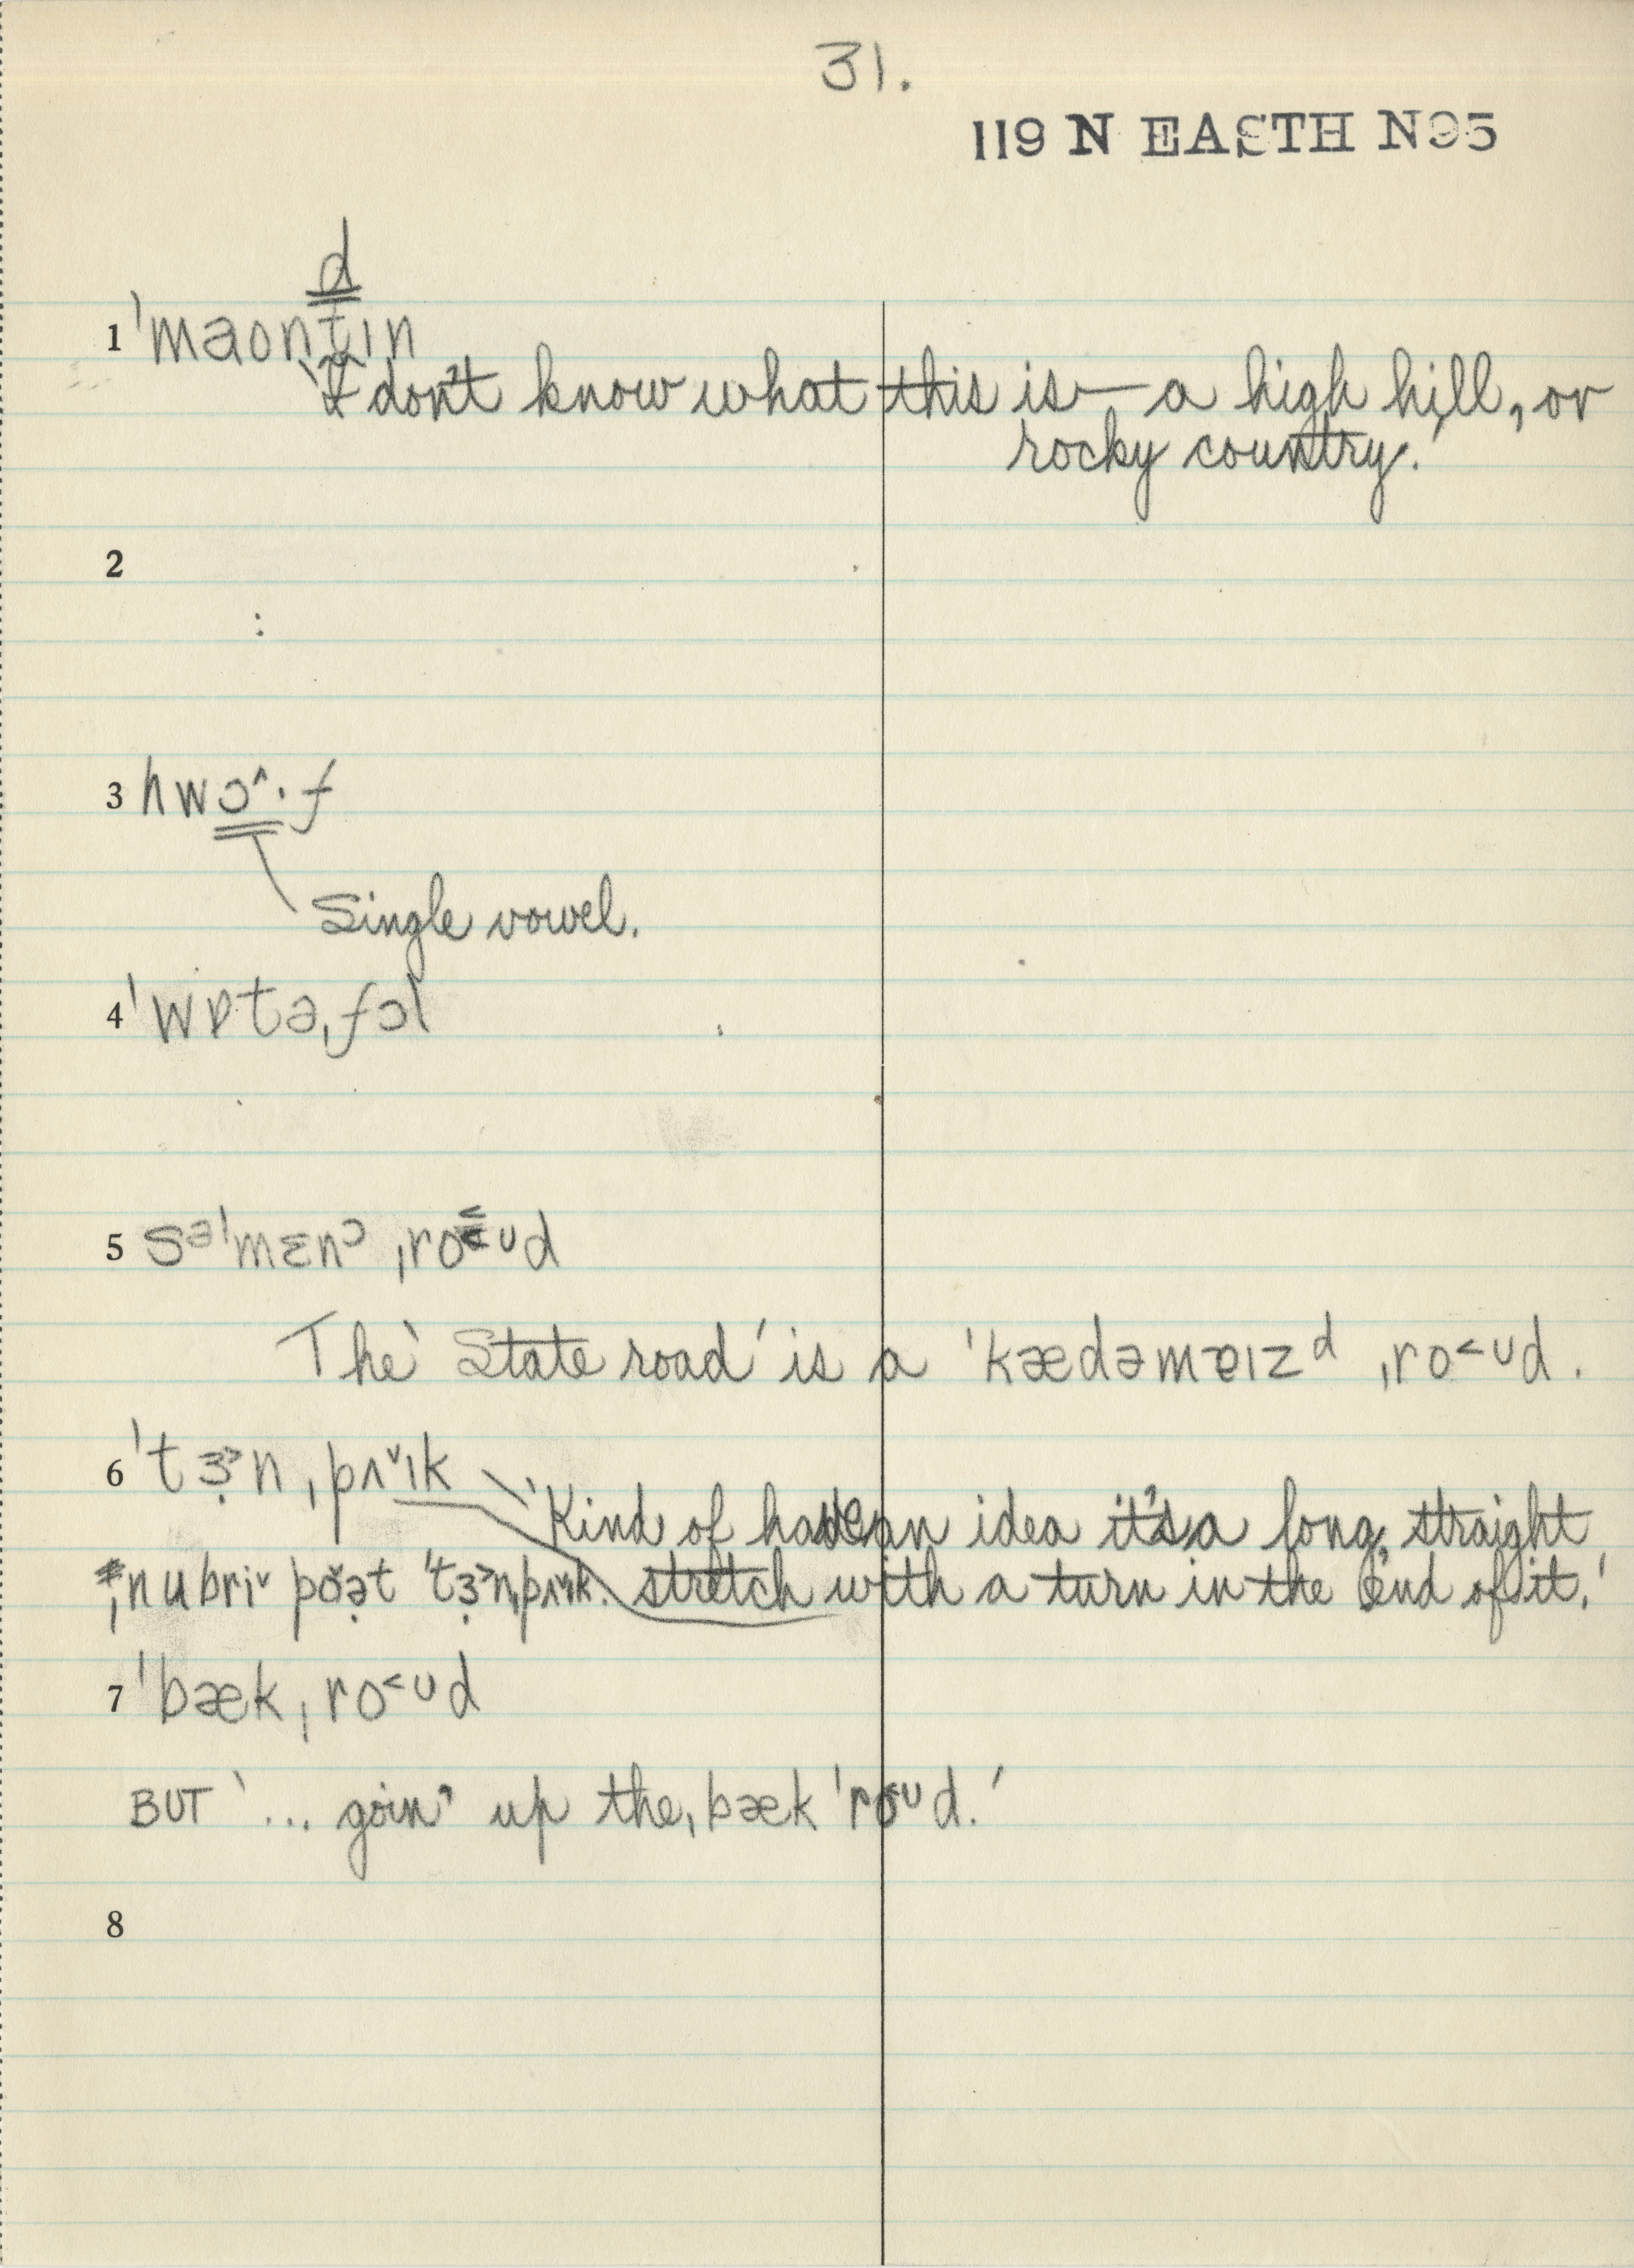 31.
119 N EASTH N95
d
1 ˈmaontın
'I don't know what this is — a high hill, or
rocky country.'
2
3 hwɔ^·f
Single vowel.
4 ˈwɒtəˌfɔl
5 səˈmɛnᵓ ˌro<ᴜd
The 'State road' is a ˈkædəmɐızᵈ ˌro<ᴜd.
6 ˈtɜ̣>n ˌpʌˇık 'Kind of have an idea it's a long, straight
stretch with a turn in the end of it.'
ˌnubriˇ pɔ̌ə̣t ˈtɜ̣>nˌpʌˇık.
7 ˈbækˌro<ᴜd
BUT '... goin' up the ˌbæk ˈro<ᴜd.'
8